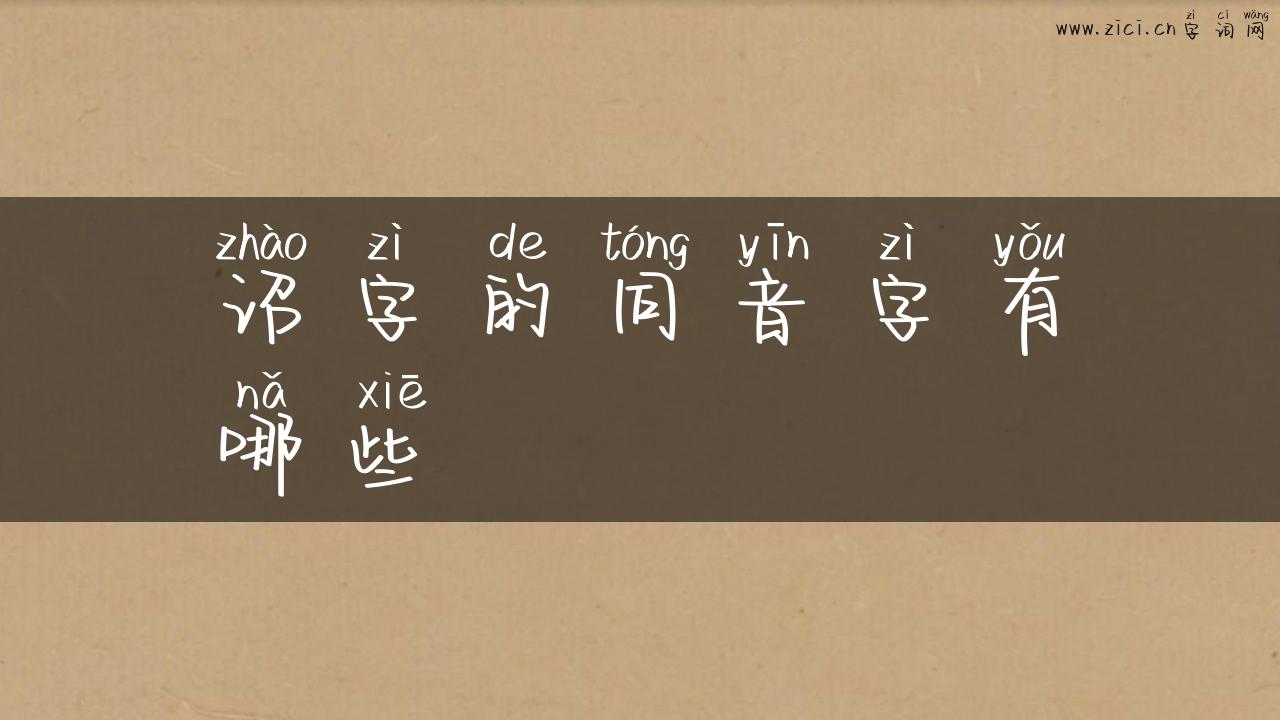 zì cí wǎng
www.zici.cn 字 词 网
zhào zì de tóng yīn zì yǒu
诏 字 的 同 音 字 有
nǎ xiē
哪 些